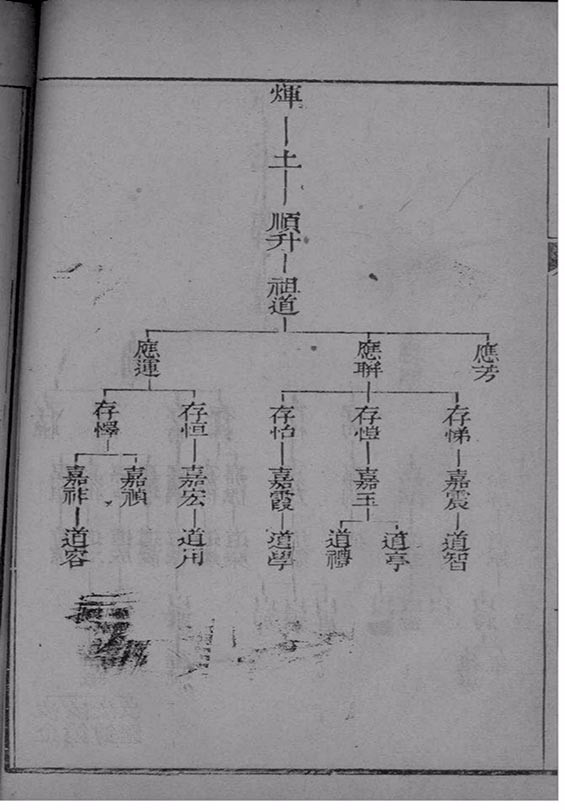 煇
士
順升
祖道
應芳
應聯
應運
存悌
存惶
存怕
存恒
存懌
嘉震
嘉玉
嘉霞
嘉宏
嘉禎
嘉祚
道智
道亭
道禮
道學
道用
道容